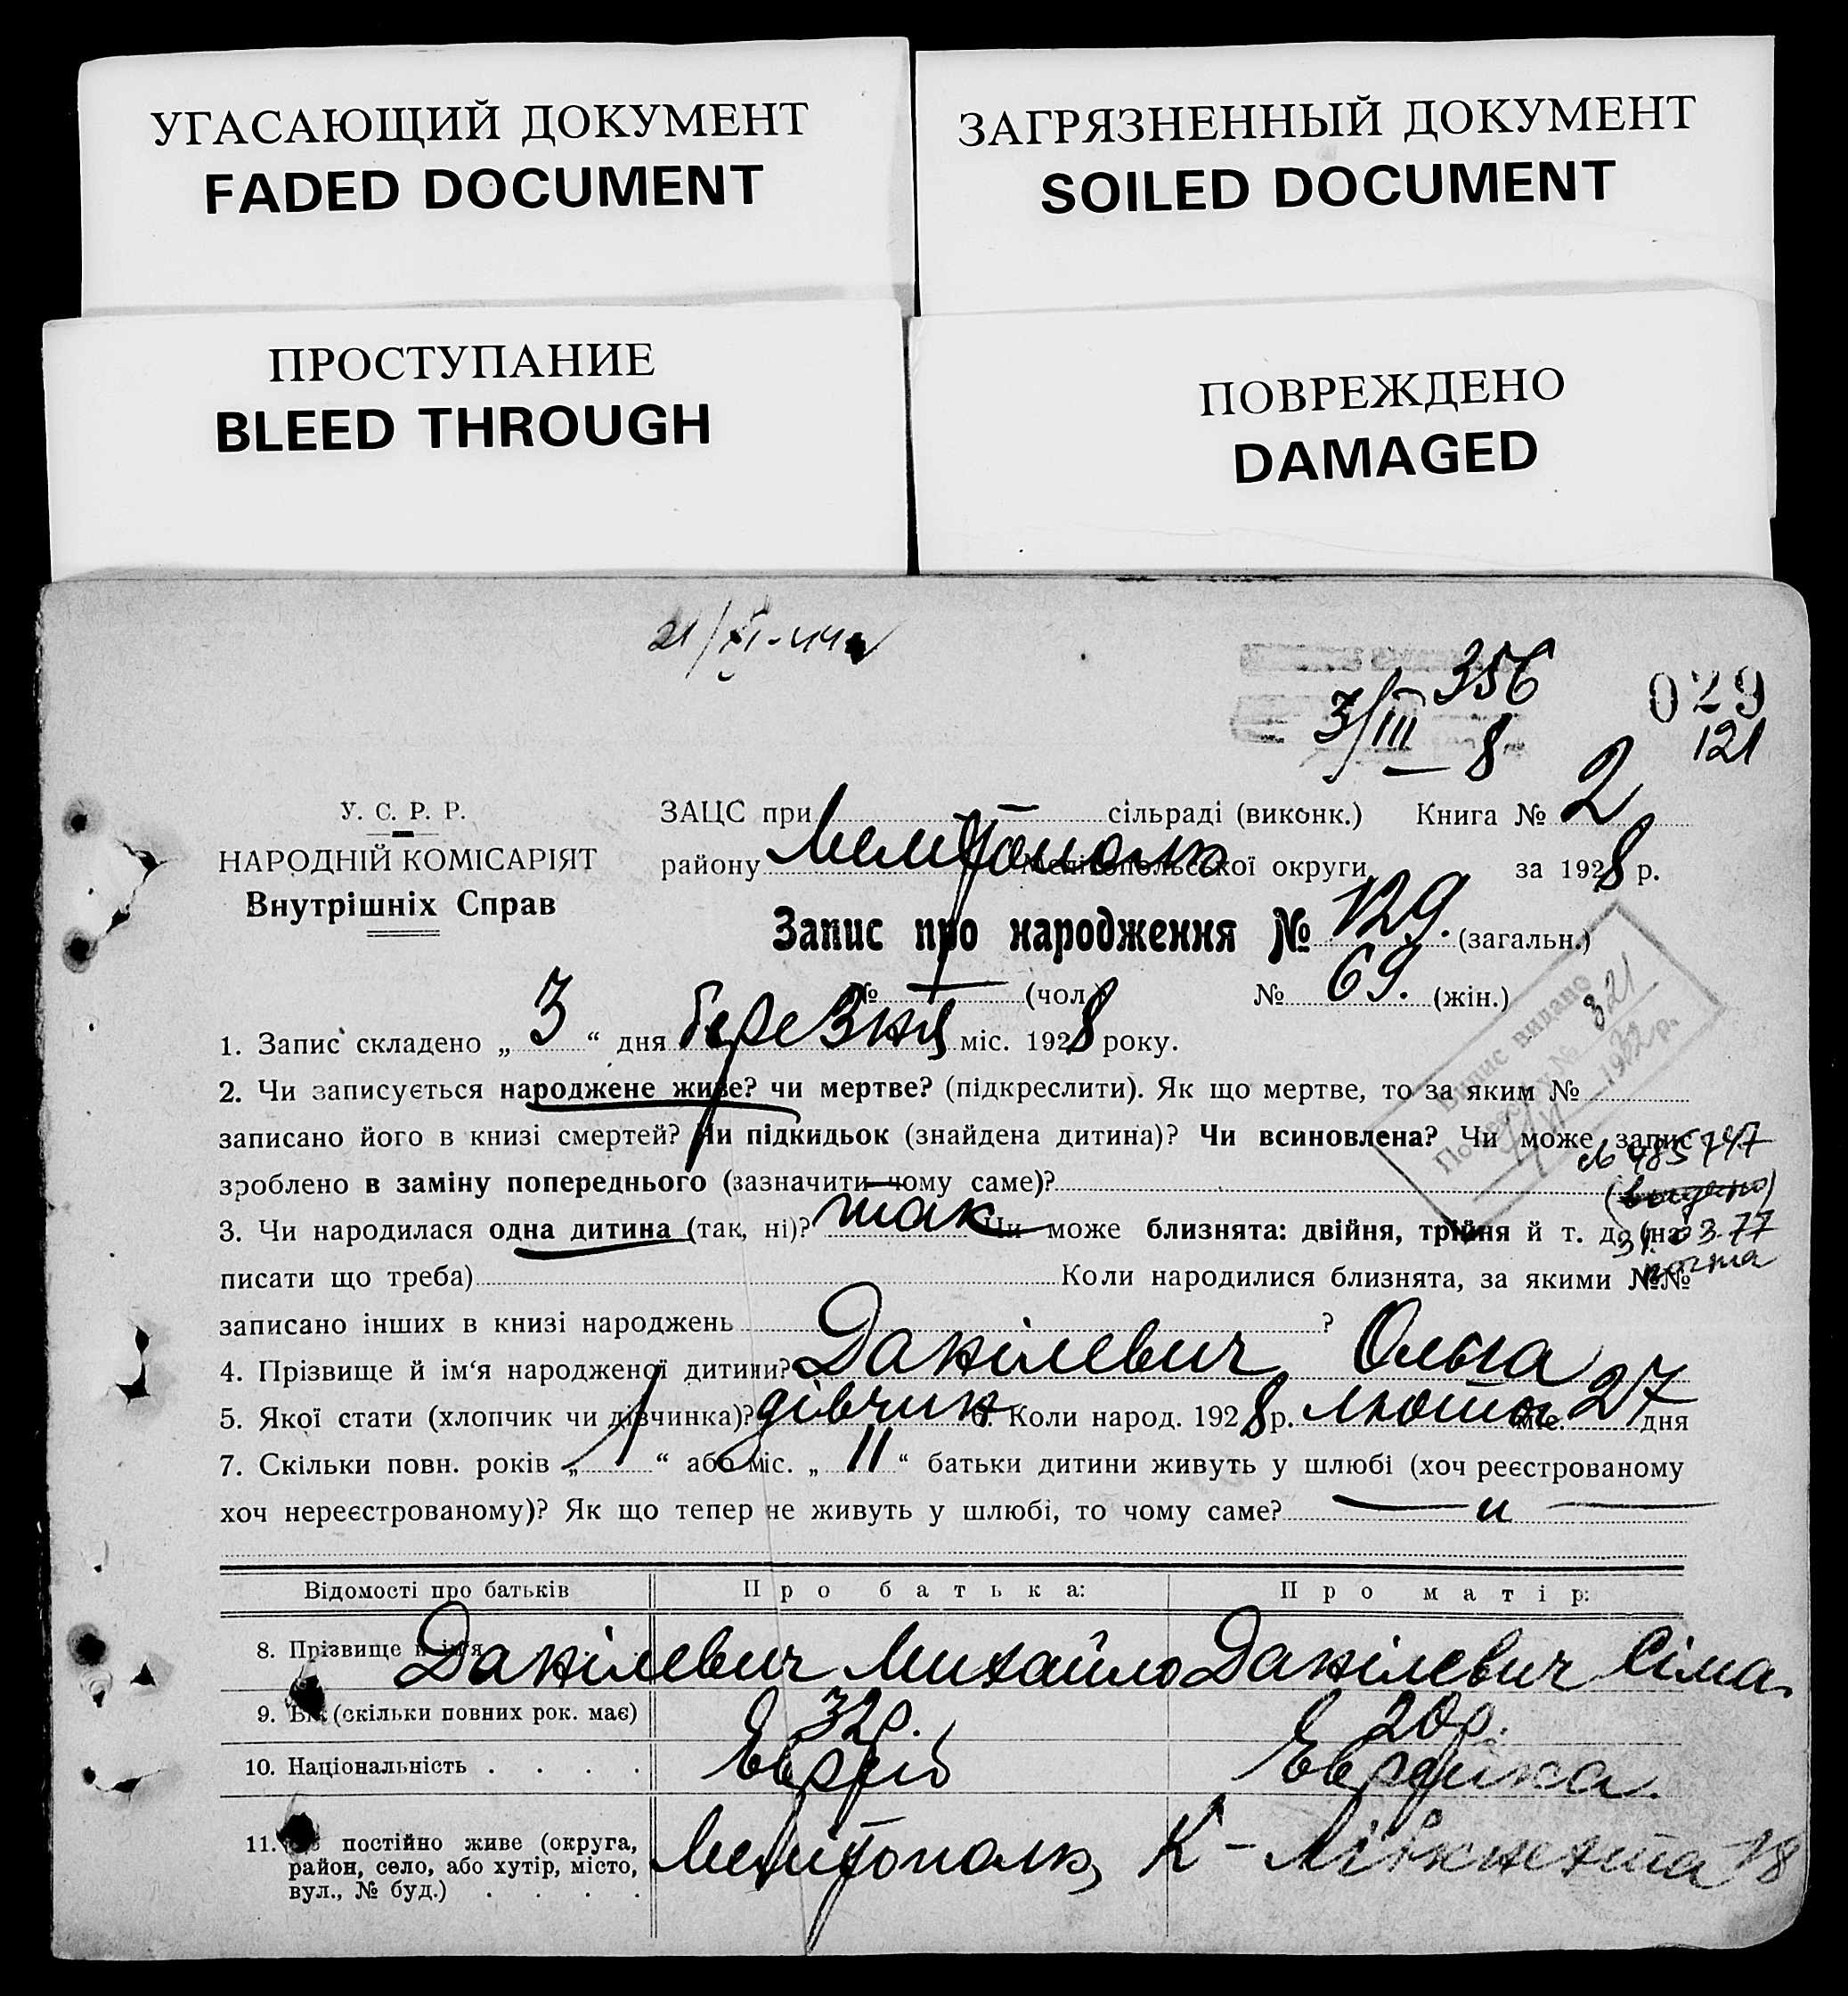 УГАСАЮЩИЙ ДОКУМЕНТ
FADED DOCUMENT
ЗАГРЯЗНЕННЫЙ ДОКУМЕНТ
SOILED DOCUMENT
ПРОСТУПАНИЕ
BLEED THROUGH
ПОВРЕЖДЕНО
DAMAGED
21/XI-44
356
3/III – 8
029
121
У. С. Р. Р.
НАРОДНІЙ КОМІСАРІЯТ
Внутрішніх Справ
ЗАЦС при сільраді (виконк.) Книга № 2
району Мелітополь Мелітопольської округи за 1928 р.
Запис про народження № 129. (загальн.)
№ — (чол.) № 69. (жін.)
Випис видано
№ 321
1932 р.
1. Запис складено „ 3 “ дня березня міс. 1928 року.
2. Чи записується народжене живе? чи мертве? (підкреслити). Як що мертве, то за яким №
записано його в книзі смертей? Чи підкидьок (знайдена дитина)? Чи всиновлена? Чи може запис
№ 485747
зроблено в заміну попереднього (зазначити чому саме)?
3. Чи народилася одна дитина (так, ні)? так Чи може близнята: двійня, трійня й т. д. (на-
писати що треба) Коли народилися близнята, за якими №№
записано інших в книзі народжень ?
4. Прізвище й ім'я народженої дитини? Данілевич Ольга
5. Якої стати (хлопчик чи дівчинка)? дівчин. 6. Коли народ. 1928 р. лютого міс. 27 дня
7. Скільки повн. років „ 1 “ або міс. „ 11 “ батьки дитини живуть у шлюбі (хоч реєстрованому
хоч нереєстрованому)? Як що тепер не живуть у шлюбі, то чому саме? — и —
Відомості про батьків Про батька: Про матір:
8. Прізвище й ім'я Данілевич Михайло Данілевич Сіма.
9. Вік (скільки повних рок. має) 32 р. 20 р.
10. Національність . . . . Еврей Еврейка.
11. Де постійно живе (округа,
район, село, або хутір, місто,
вул., № буд.) . . . .
Мелітополь, К – Лібкнехта 18